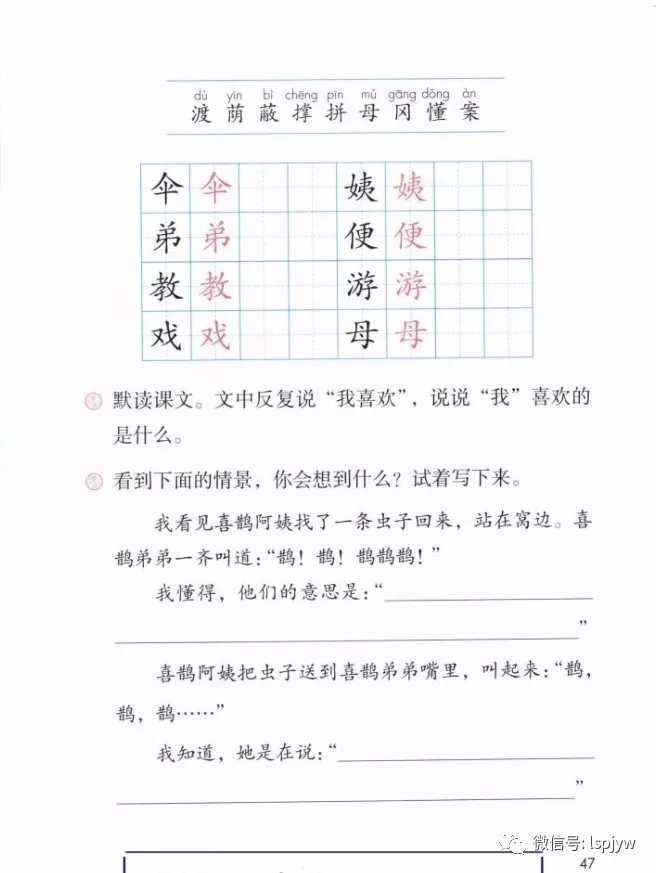 dù yīn bì chēng pīn mǔ gāng dǒng àn
渡 荫 蔽 撑 拼 母 冈 懂 案
伞 伞 姨 姨
弟 弟 便 便
教 教 游 游
戏 戏 母 母
默读课文。文中反复说“我喜欢”，说说“我”喜欢的
是什么。
看到下面的情景，你会想到什么？试着写下来。
我看见喜鹊阿姨找了一条虫子回来，站在窝边。喜
鹊弟弟一齐叫道：“鹊！鹊！鹊鹊鹊！”
我懂得，他们的意思是：“
”
喜鹊阿姨把虫子送到喜鹊弟弟嘴里，叫起来：“鹊，
鹊，鹊……”
我知道，她是在说：“
”
微信号: lspjyw
47